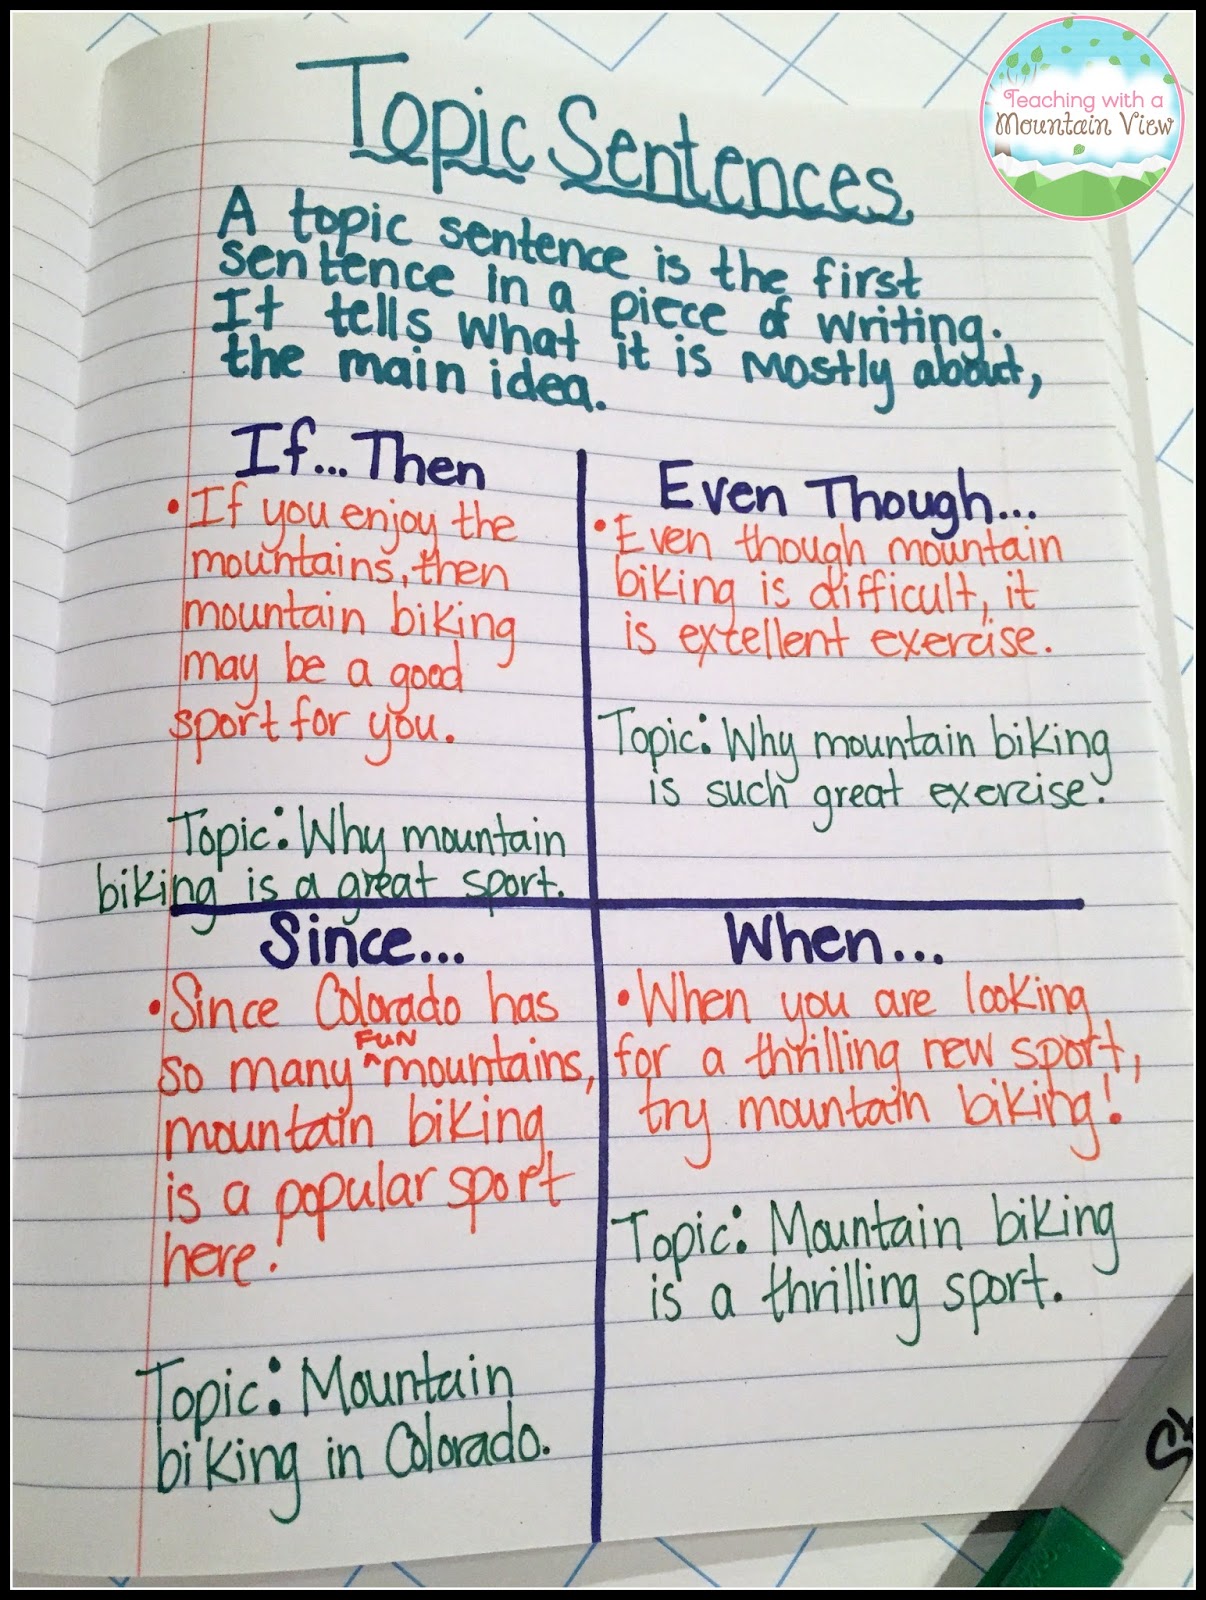 Teaching with a
Mountain View
Topic Sentences
A topic sentence is the first
sentence in a piece of writing.
It tells what it is mostly about,
the main idea.
If... Then
• If you enjoy the
mountains, then
mountain biking
may be a good
sport for you.
Topic: Why mountain
biking is a great sport.
Even Though...
• Even though mountain
biking is difficult, it
is excellent exercise.
Topic: Why mountain biking
is such great exercise.
Since...
• Since Colorado has
so many ^FUN mountains,
mountain biking
is a popular sport
here!
Topic: Mountain
biking in Colorado.
When...
• When you are looking
for a thrilling new sport,
try mountain biking!
Topic: Mountain biking
is a thrilling sport.